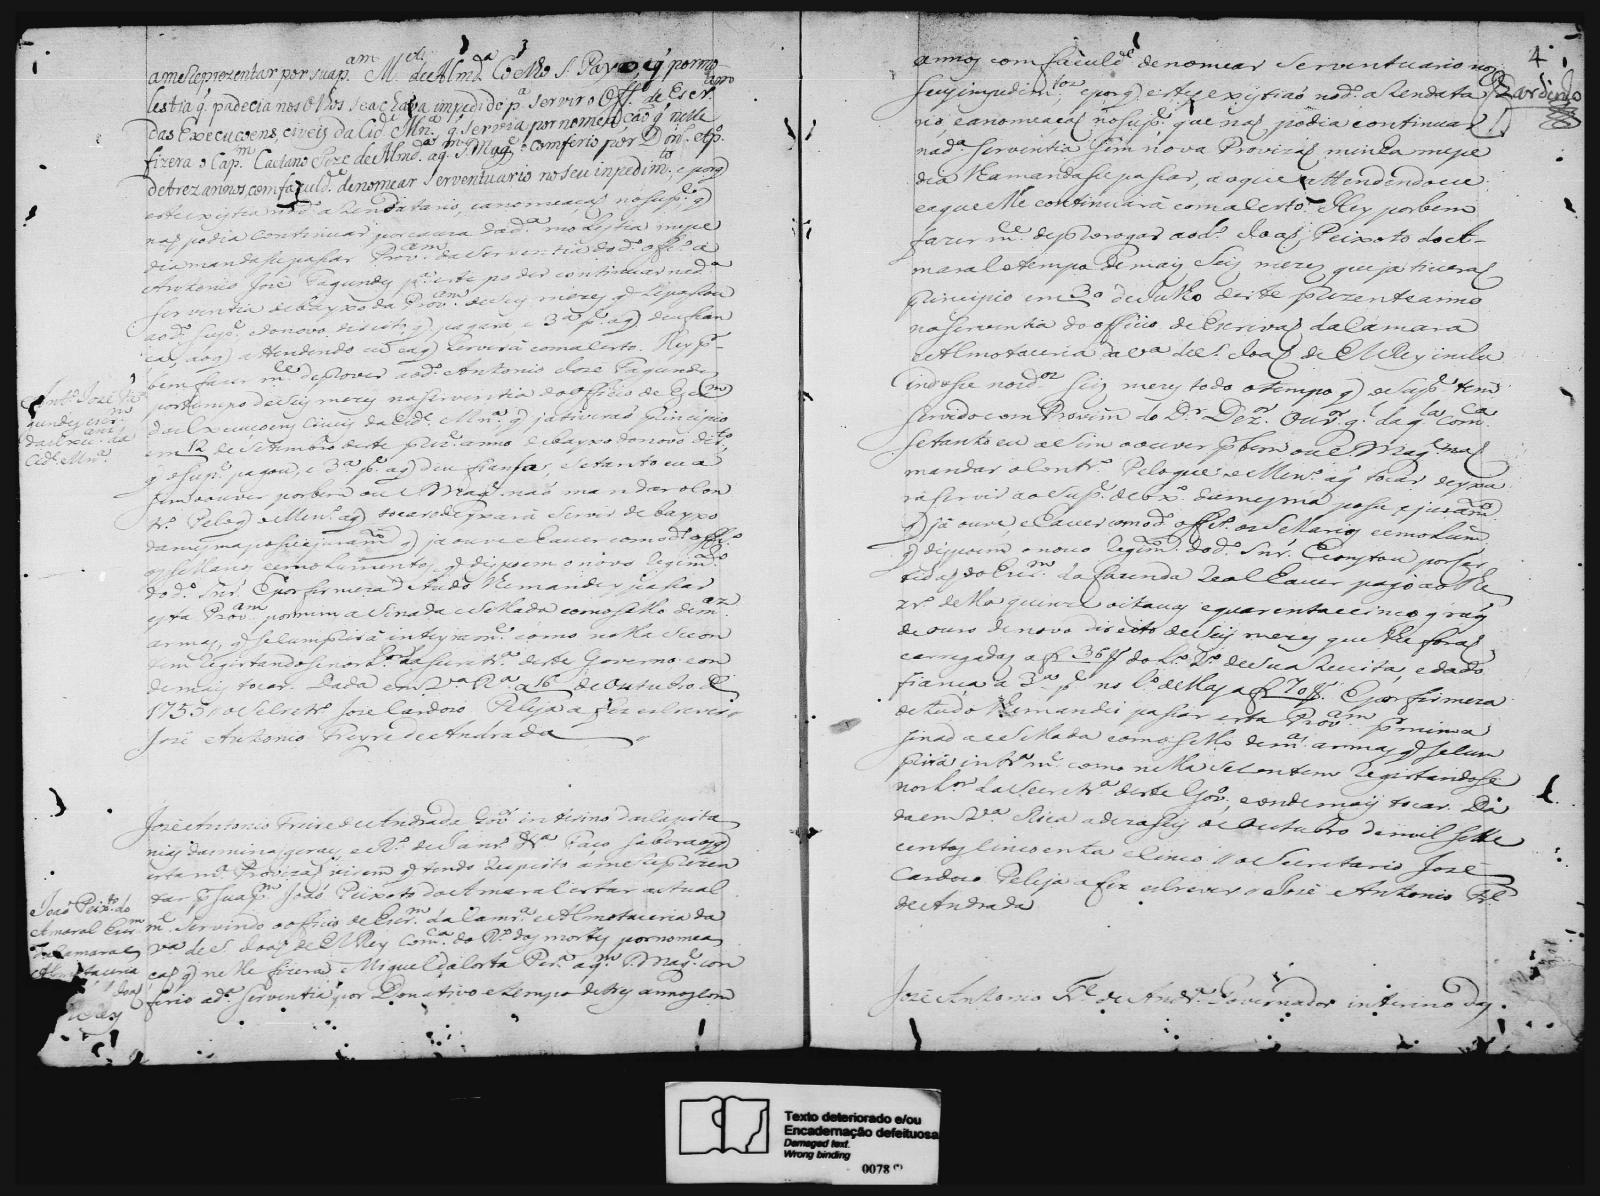 ame Reprezentar por sua p.am M.el de Alm.da Coelho S. Payo, q por mo
lestia q padecia nos olhos seachava impedido p.a servir o Off.o de Escr.
das Execucoens civeis da Cid.e Mn.a q servia por nomeaçaõ q nelle
fizera o Cap.m Caetano Joze de Almd.a aq.m S. Mag.e comferio por Don.o etp.o
detrez annos com faculd.e denomear serventuario no seu impedim.to, e porq
este existia nod.o aRendatario, eanomeaçaõ no sup.e q
naõ podia continuar por cauza dad.a molestia mepe
dia mandasse passar Prov.am da serventia dod.o off.o a
Antonio José Fagundes p.a este poder continuar nad.a
serventia debayxo da Prov.am de seis mezes q
aod.o Sup.e e donovo direito q pagará e 3.a p.e aq deu fian
ça, aoq attendendo eu eaq servirá comacerto. Hey p.r
bem fazer m.ce deprover aod.o Antonio Jozé Fagundes
por tempo de seis mezes na serventia do officio de Escr.m
das Execucoens Civeis da Cid.e Mn.a q jativeraõ principio
em 12 de Setembro deste prez.e anno debayxo donovo dir.to
q osup.e pagou, e 3.a p.e aq deu fiança, setanto eu a
sim ouver por bem ou S Mag.e naõ mandar o con
tr.o Peloq oMen.o aq tocar odeyxará servir debayxo
damesma posse ejuram.to q ja ouve e haver com od.o off.o
os sellarios, eemolumentos q dispoem onovo Regim.to
dod.o Snr. E por firmeza detudo lhe mandey passar
esta Prov.am por mim asinada esellada comosello dem.as
armas, q secumprirá inteyram.e como nella secon
tem registandose nos L.os da Secretr.a deste Governo eon
demais tocar. Dada em V.a R.a a 16 de Outubro de
1755 o Secretr.o José Cardozo Peleja a fez escrever
José Antonio Freyre de Andrada
Ant.o Jozé Fa
gundes escr.m
das exec.
Cid.e Mn.a
José Antonio Freire de Andrada Gov.or interino da Capita
nia das minas geraes e R.o de Jan.ro &.a Faço saber aosq
esta m.a Provizaõ virem q tendo respeito ame Reprezen
tar p.r sua p.m Joaõ Peixoto do Amaral estar actual
m.e servindo o officio de Escr.m da Cam.ra e Almotaceria da
V.a de S. Joaõ de ElRey Com.ca do R.o das mortes por nomea
çaõ q nelle fizera Miguel da Costa Per.a aq.m S. Mag.e con
ferio ad.a serventia por Donativo e tempo de tres annos com
Joaõ Peix.to do
Amaral Escr.m
da Camara e
Almotaceria
Joaõ
Rey
4
Cardozo
annos com faculd.e denomear Serventuario nos
seus impedim.tos, eporq estes existiaõ nod.o aRendata
rio, eanomeaçaõ no sup.e, que naõ podia continuar
nad.a serventia sem nova Provizaõ minha mepe
dia lhamandase passar, aoque attendendo eu
eaque elle continuará comacerto. Hey por bem
fazer m.ce deprorogar aod.o Joaõ Peixoto do A-
maral otempo de mais seis mezes que ja tiveraõ
principio em 30 de Julho deste prezente anno
naserventia do officio de Escrivaõ da Camara
e Almotaceria da V.a de S. Joaõ de ElRey inclu
indose nosd.os seis mezes todo otempo q oSup.e tem
servido com Provim.to do D.r Dez.or Ouv.or g.l da q.la Com.ca
setanto eu asim oouver p.r bem ou S Mag.e naõ
mandar ocontr.o Peloque o Men.o aq tocar deyxa
rá servir ao Sup.e deBx.o damesma posse e juram.to
q já ouve, ehaver comod.o off.o os sellarios eemolum.tos
q dispoem onovo Regim.to dod.o Snr. E constou por ser
tidaõ do Escr.m da fazenda Real haver pago ao the
zr.o della quinze oitavas equarentaecinco graõs
de ouro de novo direito deseis mezes que lhe foraõ
carregadas a f 36 do L.o 2.o desua Receita, edado
fiança a 3.a p.e no L.o dellas a f 70. E por firmeza
detudo lhemandei passar esta Prov.am p.r mim a
sinada eselllada comosello dem.as armas q secum
prirá intr.am.e como nella secontem Registandose
nos L.os da Secretr.a deste Gov.o, eonde mais tocar. Da
da em V.a Rica a dezaseis de Outubro demil sette
centos cincoenta e cinco o Secretario José
Cardozo Peleja a fez escrever José Antonio Fr.e
de Andrada
José Antonio Fr.e de Andr.a Governador interino das
Texto deteriorado e/ou
Encadernação defeituosa
Damaged text.
Wrong binding
0078 (*)